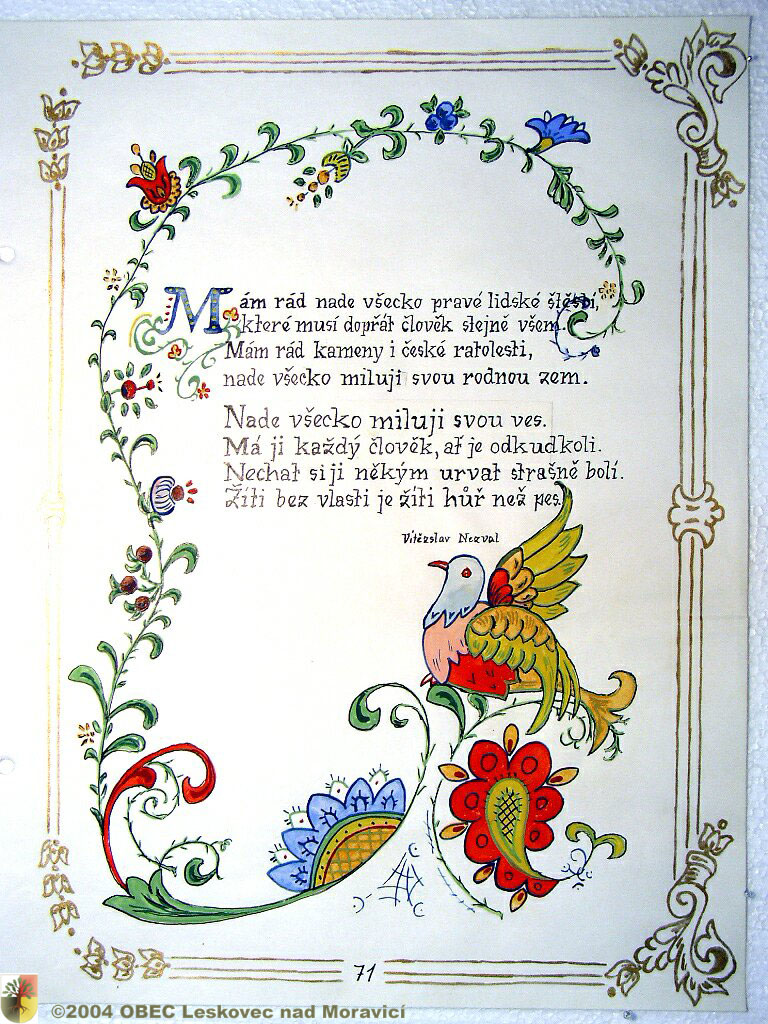 Mám rád nade všecko pravé lidské štěstí,
které musí dopřát člověk stejně všem.
Mám rád kameny i české ratolesti,
nade všecko miluji svou rodnou zem.
Nade všecko miluji svou ves.
Má ji každý člověk, ať je odkudkoli.
Nechat si ji někým urvat strašně bolí.
Žíti bez vlasti je žíti hůř než pes.
Vítězslav Nezval
71
©2004 OBEC Leskovec nad Moravicí